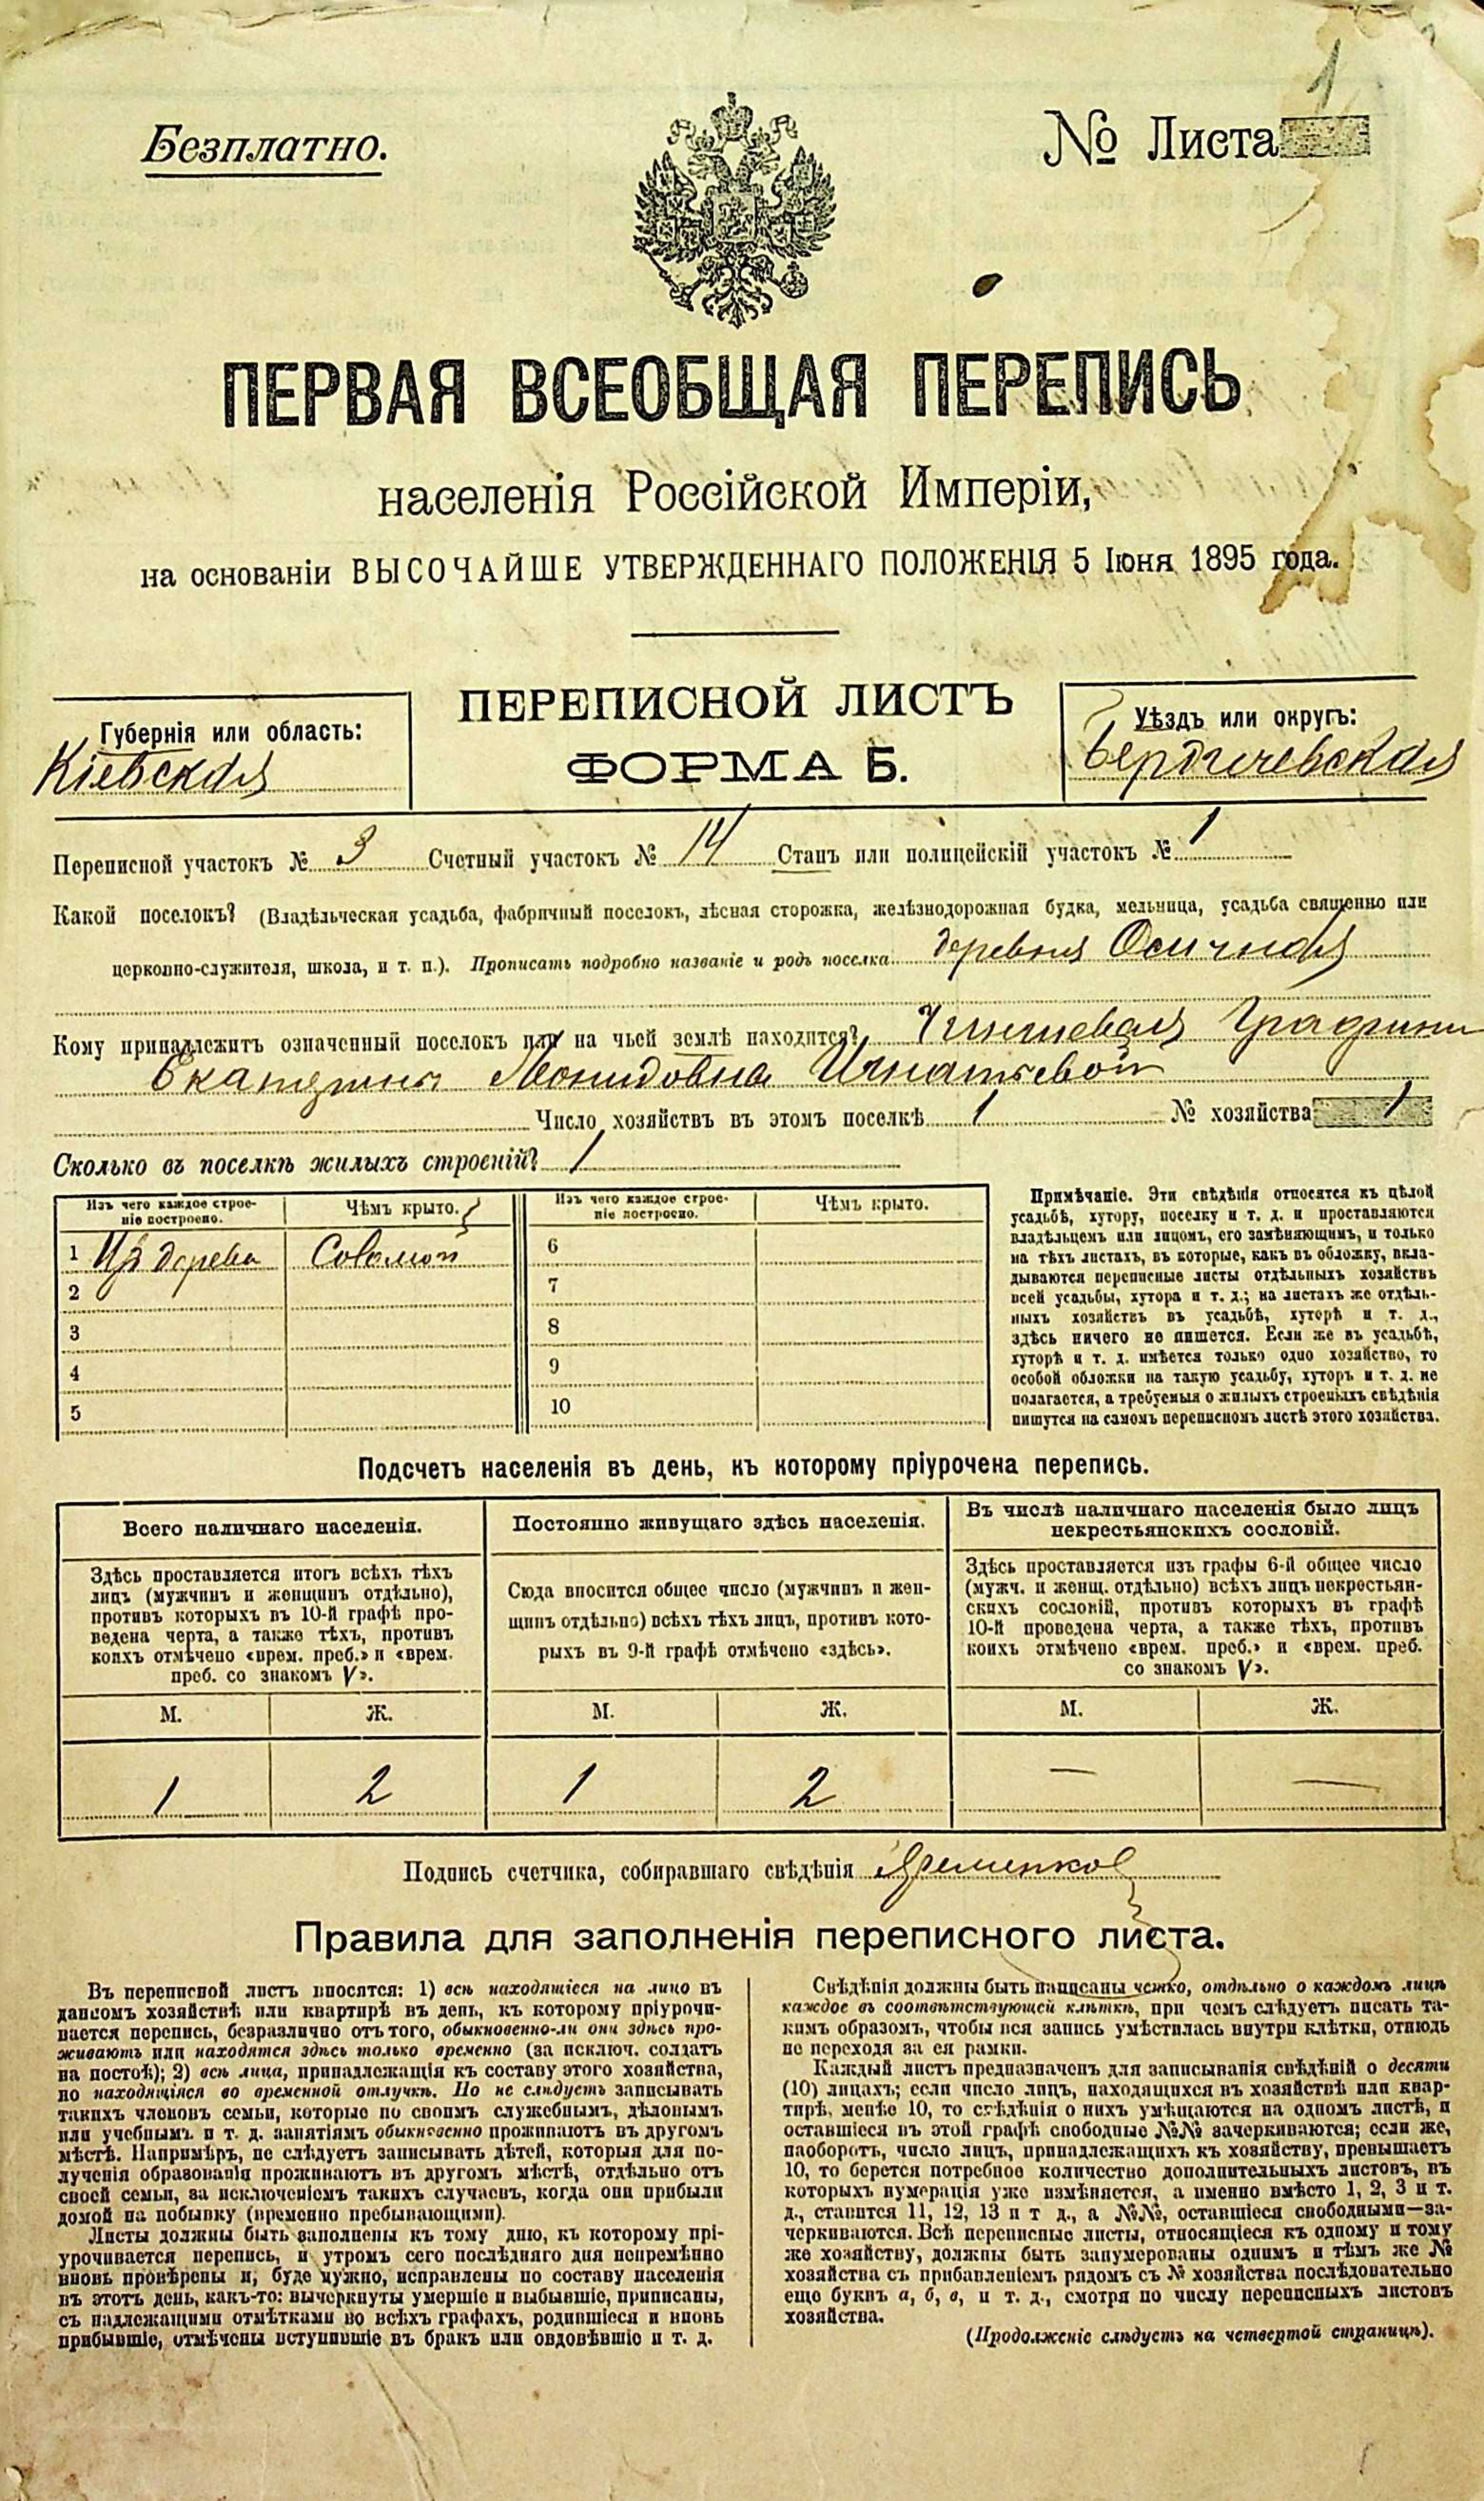 1
Безплатно.
№ Листа
ПЕРВАЯ ВСЕОБЩАЯ ПЕРЕПИСЬ
населенія Россійской Имперіи,
на основаніи ВЫСОЧАЙШЕ УТВЕРЖДЕННАГО ПОЛОЖЕНІЯ 5 Іюня 1895 года.
ПЕРЕПИСНОЙ ЛИСТЪ
ФОРМА Б.
Губернія или область:
Кіевская
Уѣздъ или округъ:
Бердичевская
Переписной участокъ № 3 Счетный участокъ № 14 Станъ или полицейскій участокъ № 1
Какой поселокъ? (Владѣльческая усадьба, фабричный поселокъ, лѣсная сторожка, желѣзнодорожная будка, мельница, усадьба священно или
церковно-служителя, школа, и т. п.). Прописать подробно названіе и родъ поселка деревня Осичная
Кому принадлежитъ означенный поселокъ или на чьей землѣ находится? Чиншевая Графини
Екатерины Леонидовна Игнатьевой
Число хозяйствъ въ этомъ поселкѣ 1 № хозяйства 1
Сколько въ поселкѣ жилыхъ строеній? 1
Изъ чего каждое строе-
ніе построено.
Чѣмъ крыто.
Изъ чего каждое строе-
ніе построено.
Чѣмъ крыто.
1 Изъ дерева Соломой 6
2 7
3 8
4 9
5 10
Примѣчаніе. Эти свѣдѣнія относятся къ цѣлой
усадьбѣ, хутору, поселку и т. д. и проставляются
владѣльцемъ или лицомъ, его замѣняющимъ, и только
на тѣхъ листахъ, въ которые, какъ въ обложку, вкла-
дываются переписные листы отдѣльныхъ хозяйствъ
всей усадьбы, хутора и т. д.; на листахъ же отдѣль-
ныхъ хозяйствъ въ усадьбѣ, хуторѣ и т. д.,
здѣсь ничего не пишется. Если же въ усадьбѣ,
хуторѣ и т. д. имѣется только одно хозяйство, то
особой обложки на такую усадьбу, хуторъ и т. д. не
полагается, а требуемыя о жилыхъ строеніяхъ свѣдѣнія
пишутся на самомъ переписномъ листѣ этого хозяйства.
Подсчетъ населенія въ день, къ которому пріурочена перепись.
Всего наличнаго населенія.
Здѣсь проставляется итогъ всѣхъ тѣхъ
лицъ (мужчинъ и женщинъ отдѣльно),
противъ которыхъ въ 10-й графѣ про-
ведена черта, а также тѣхъ, противъ
коихъ отмѣчено «врем. преб.» и «врем.
преб. со знакомъ V».
М. Ж.
1 2
Постоянно живущаго здѣсь населенія.
Сюда вносится общее число (мужчинъ и жен-
щинъ отдѣльно) всѣхъ тѣхъ лицъ, противъ кото-
рыхъ въ 9-й графѣ отмѣчено «здѣсь».
М. Ж.
1 2
Въ числѣ наличнаго населенія было лицъ
некрестьянскихъ сословій.
Здѣсь проставляется изъ графы 6-й общее число
(мужч. и женщ. отдѣльно) всѣхъ лицъ некрестьян-
скихъ сословій, противъ которыхъ въ графѣ
10-й проведена черта, а также тѣхъ, противъ
коихъ отмѣчено «врем. преб.» и «врем. преб.
со знакомъ V».
М. Ж.
— —
Подпись счетчика, собиравшаго свѣдѣнія
Правила для заполненія переписного листа.
Въ переписной листъ вносятся: 1) всѣ находящіеся на лицо въ
данномъ хозяйствѣ или квартирѣ въ день, къ которому пріурочи-
вается перепись, безразлично отъ того, обыкновенно-ли они здѣсь про-
живаютъ или находятся здѣсь только временно (за исключ. солдатъ
на постоѣ); 2) всѣ лица, принадлежащія къ составу этого хозяйства,
но находящіяся во временной отлучкѣ. Но не слѣдуетъ записывать
такихъ членовъ семьи, которые по своимъ служебнымъ, дѣловымъ
или учебнымъ и т. д. занятіямъ обыкновенно проживаютъ въ другомъ
мѣстѣ. Напримѣръ, не слѣдуетъ записывать дѣтей, которыя для по-
лученія образованія проживаютъ въ другомъ мѣстѣ, отдѣльно отъ
своей семьи, за исключеніемъ такихъ случаевъ, когда они прибыли
домой на побывку (временно пребывающими).
Листы должны быть заполнены къ тому дню, къ которому прі-
урочивается перепись, и утромъ сего послѣдняго дня непремѣнно
вновь провѣрены и, буде нужно, исправлены по составу населенія
въ этотъ день, какъ-то: вычеркнуты умершіе и выбывшіе, приписаны,
съ надлежащими отмѣтками во всѣхъ графахъ, родившіеся и вновь
прибывшіе, отмѣчены вступившіе въ бракъ или овдовѣвшіе и т. д.
Свѣдѣнія должны быть написаны четко, отдѣльно о каждомъ лицѣ
каждое въ соотвѣтствующей клѣткѣ, при чемъ слѣдуетъ писать та-
кимъ образомъ, чтобы вся запись умѣстилась внутри клѣтки, отнюдь
не переходя за ея рамки.
Каждый листъ предназначенъ для записыванія свѣдѣній о десяти
(10) лицахъ; если число лицъ, находящихся въ хозяйствѣ или квар-
тирѣ, менѣе 10, то свѣдѣнія о нихъ умѣщаются на одномъ листѣ, и
оставшіеся въ этой графѣ свободные №№ зачеркиваются; если же,
наоборотъ, число лицъ, принадлежащихъ къ хозяйству, превышаетъ
10, то берется потребное количество дополнительныхъ листовъ, въ
которыхъ нумерація уже измѣняется, а именно вмѣсто 1, 2, 3 и т.
д., ставится 11, 12, 13 и т д., а №№, оставшіеся свободными—за-
черкиваются. Всѣ переписные листы, относящіеся къ одному и тому
же хозяйству, должны быть занумерованы однимъ и тѣмъ же №
хозяйства съ прибавленіемъ рядомъ съ № хозяйства послѣдовательно
еще буквъ а, б, в, и т. д., смотря по числу переписныхъ листовъ
хозяйства.
(Продолженіе слѣдуетъ на четвертой страницѣ).